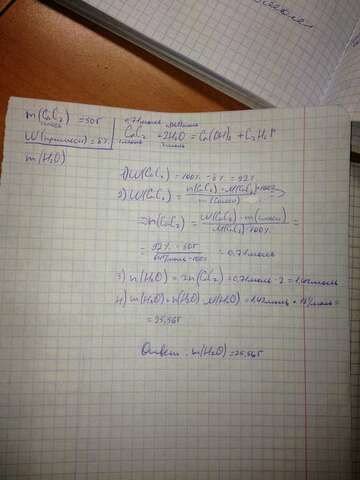 m(CaC₂) = 50г
смеси
W(примеси) = 8%
m(H₂O)
0,71моль
CaC₂ + 2H₂O = Ca(OH)₂ + C₂H₂↑
1моль 2моль
1) W(CaC₂) = 100% - 8% = 92%
2) W(CaC₂) = n(CaC₂) · M(CaC₂) · 100% / m(смеси) ⇒
⇒ n(CaC₂) = W(CaC₂) · m(смеси) / M(CaC₂) · 100% =
= 92% · 50г / 64г/моль · 100% = 0,71моль
3) n(H₂O) = 2n(CaC₂) = 0,71моль · 2 = 1,42моль
4) m(H₂O) = n(H₂O) · M(H₂O) = 1,42моль · 18г/моль =
= 25,56г
Ответ: m(H₂O) = 25,56г